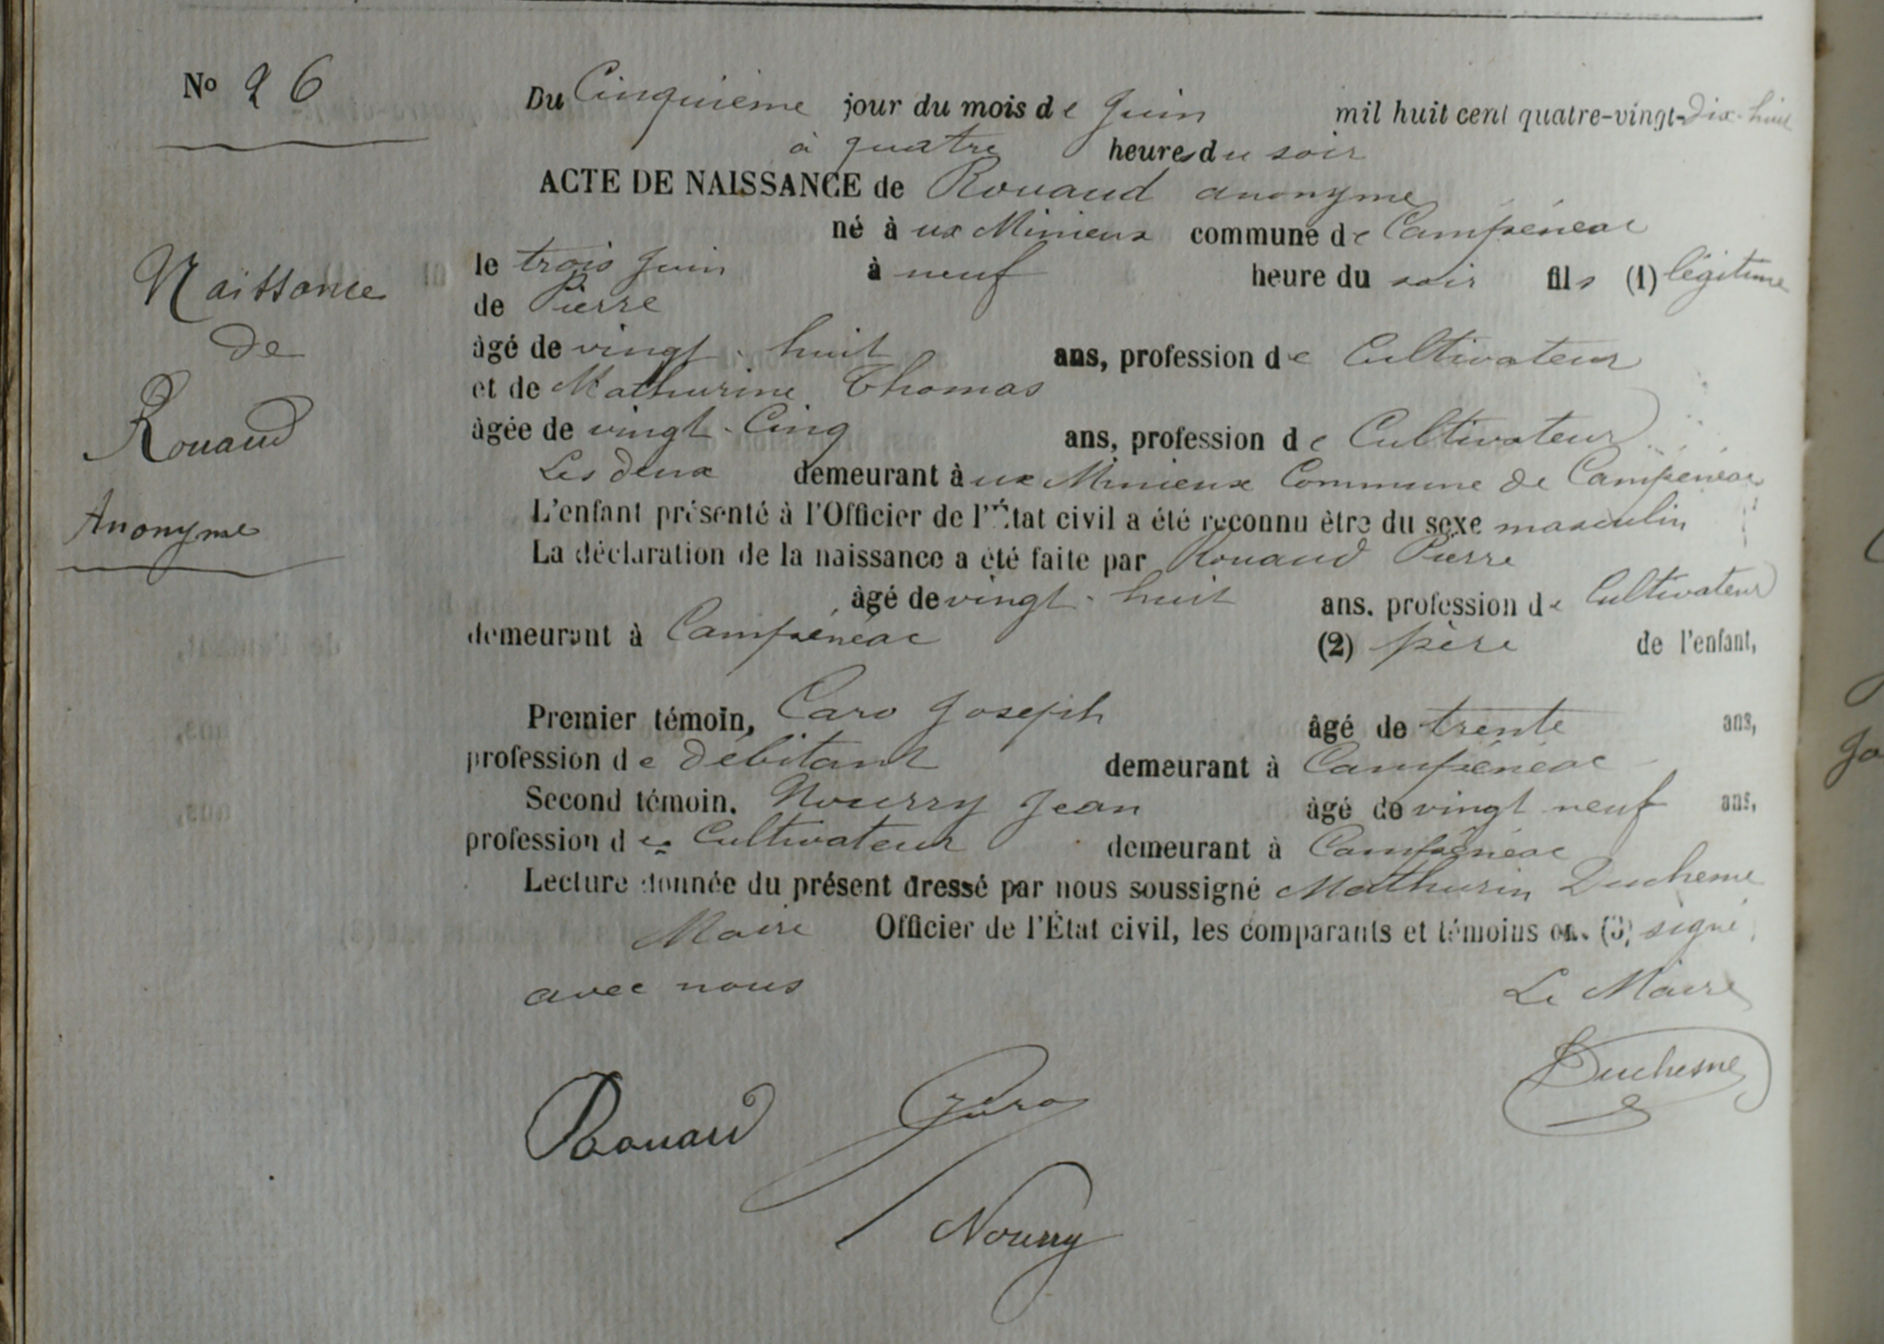 No 26
Du Cinquième jour du mois de Juin mil huit cent quatre-vingt-dix-huit
à quatre heures du soir
ACTE DE NAISSANCE de Rouaud anonyme
né à ux Minieux commune de Campénéac
le trois Juin à neuf heure du soir fils (1) légitime
de Pierre
âgé de vingt-huit ans, profession de Cultivateur
et de Mathurine Thomas
âgée de vingt-Cinq ans, profession de Cultivateur
Les deux demeurant à ux Minieux Commune de Campénéac
L'enfant présenté à l'Officier de l'État civil a été reconnu être du sexe masculin
La déclaration de la naissance a été faite par Rouaud Pierre
âgé de vingt-huit ans, profession de Cultivateur
demeurant à Campénéac (2) père de l'enfant,
Premier témoin, Caro Joseph âgé de trente ans,
profession de débitant demeurant à Campénéac
Second témoin, Nourry Jean âgé de vingt neuf ans,
profession de Cultivateur demeurant à Campénéac
Lecture donnée du présent dressé par nous soussigné Mathurin Duchesne
Maire Officier de l'État civil, les comparants et témoins ont (3) signé
avec nous Le Maire
Naissance
de
Rouaud
Anonyme
Rouaud Caro Duchesne
Nourry